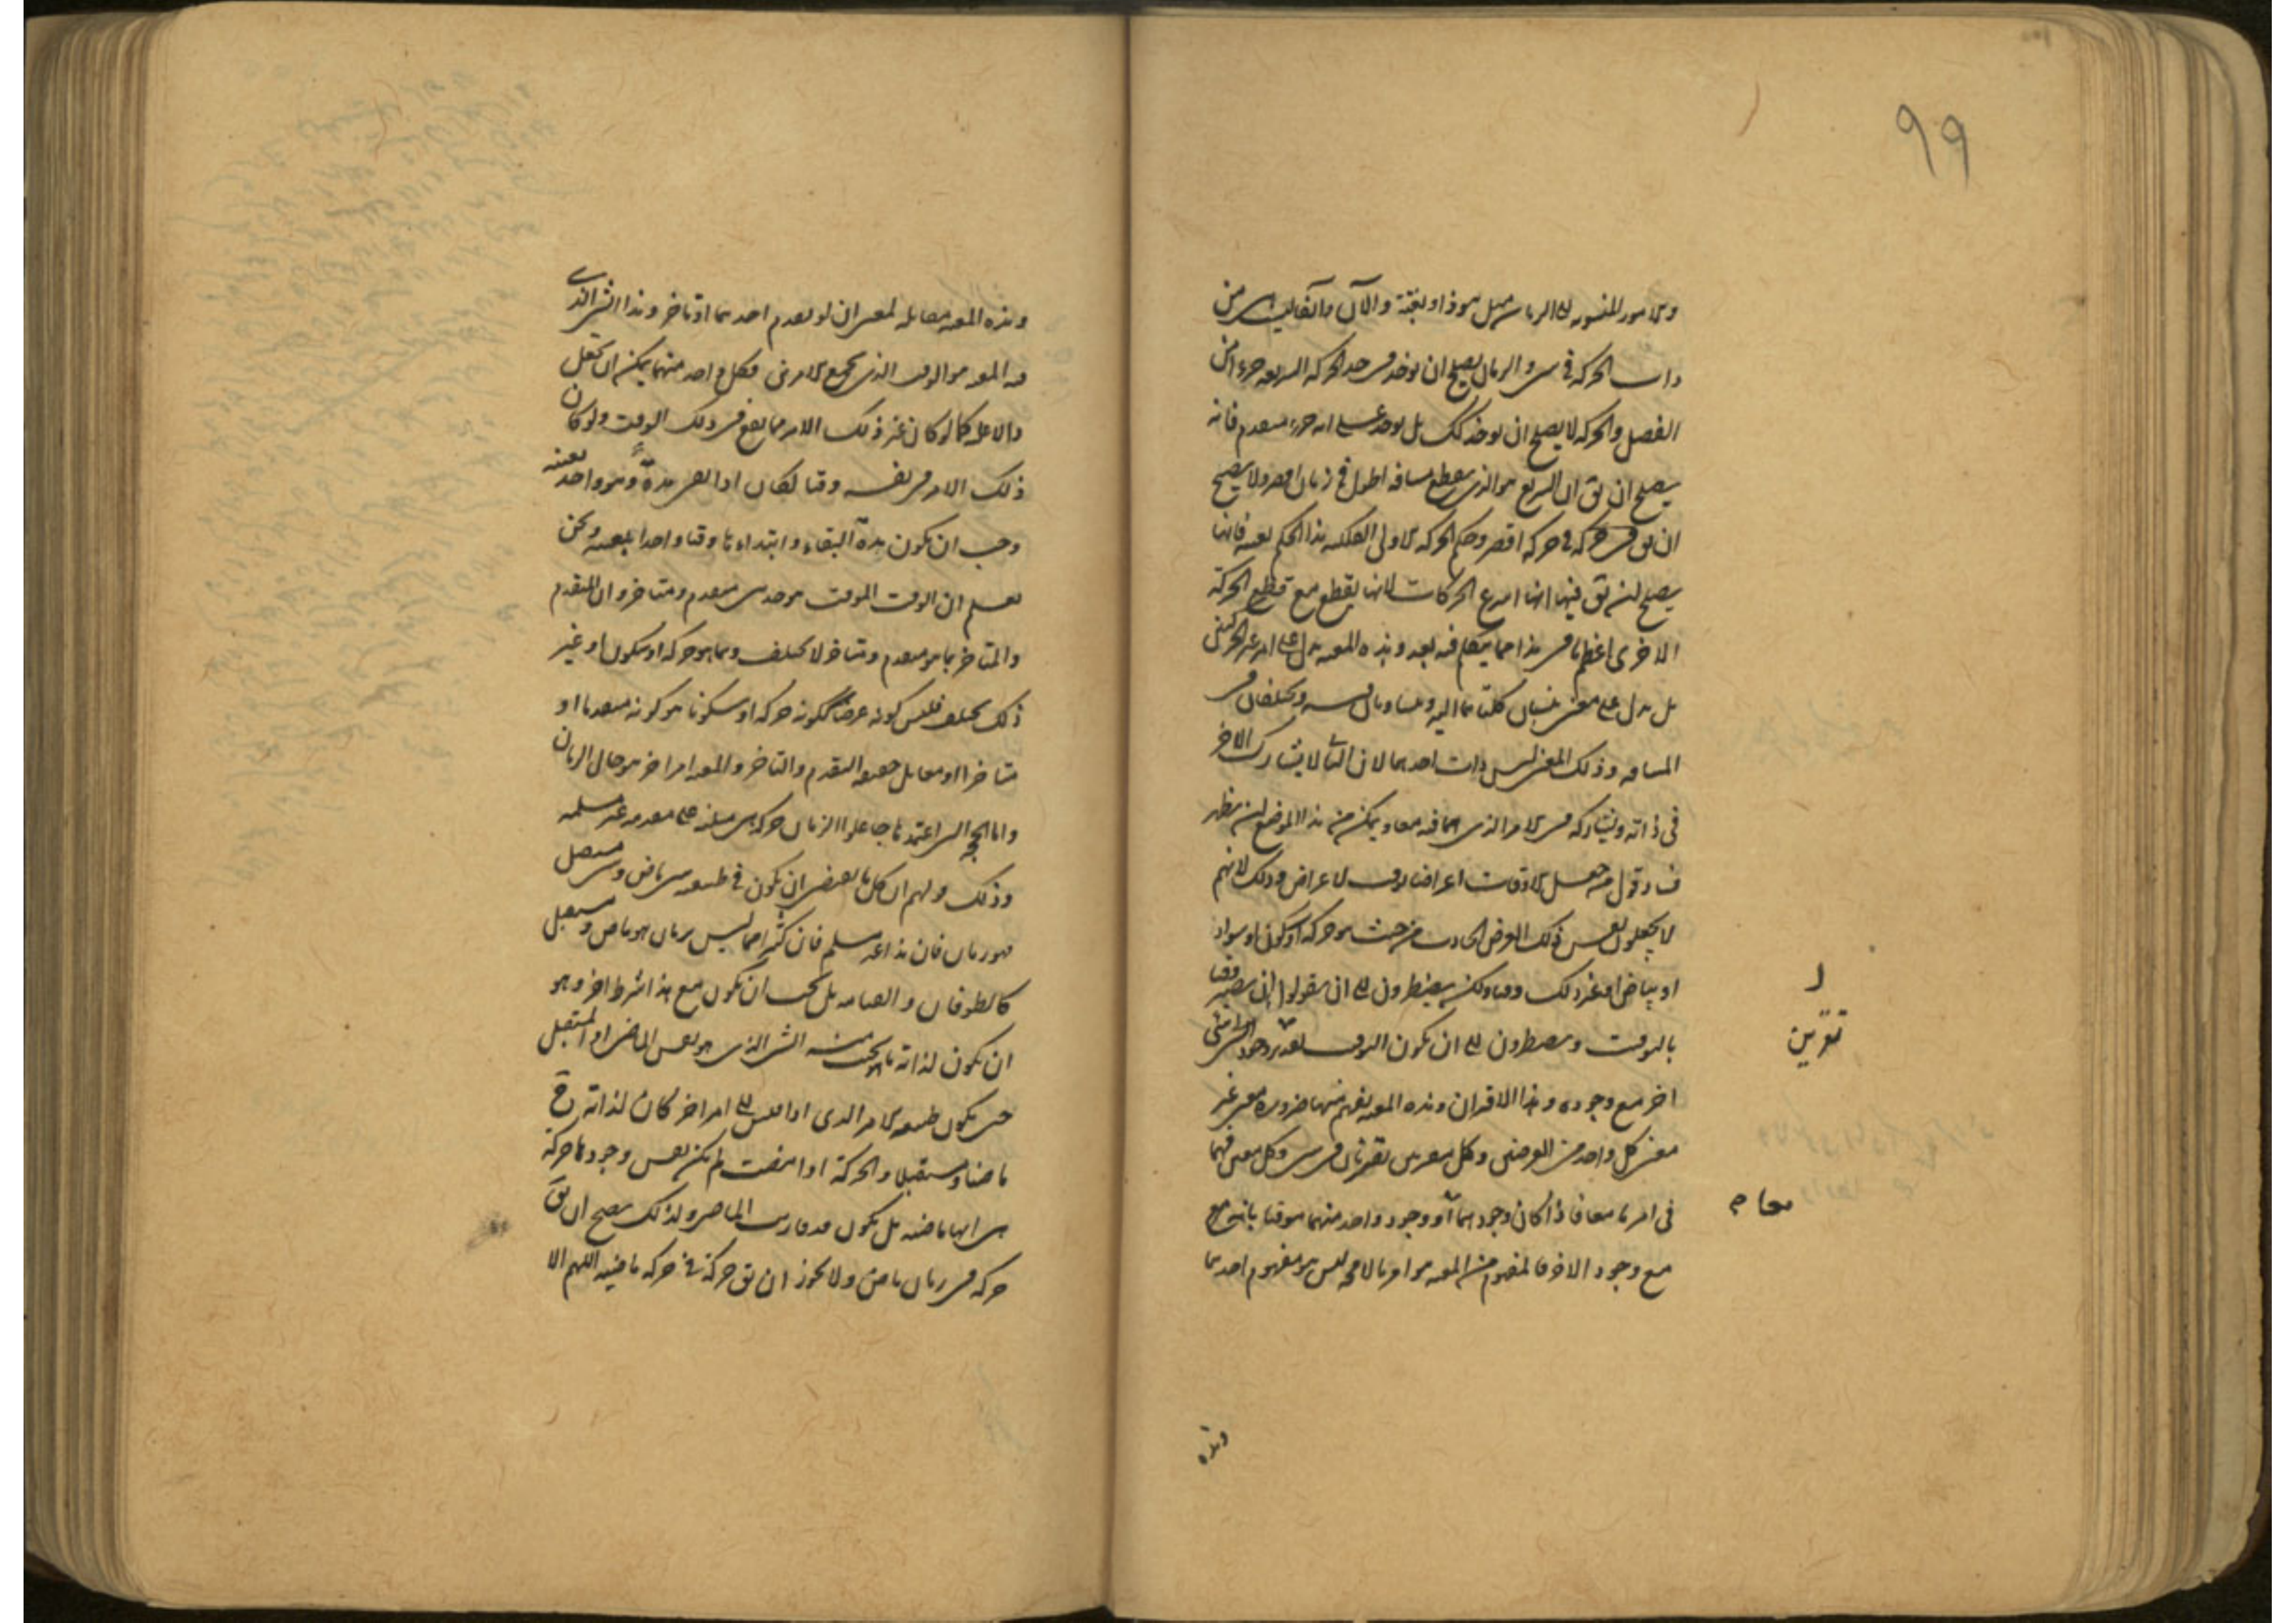 ٩٩
والامور المنسوبه الى الزمان مثل هوذا وبغتة والآن وآنفا ليست من
ذات الحركة فى شى والزمان يصلح ان يوخذ فى حد الحركه السريعه جزءا من
الفصل والحركه لا يصلح ان يوخذ كك بل يوخذ على انه جزء متقدم فانه
يصلح ان يق ان السريع هو الذى يقطع مسافه اطول فى زمان اقصر ولا يصلح
ان يق فى حركه اقصر وحكم الحركه الاولى الفلكيه هذا الحكم بعينه فانها
يصلح ان يق فيها انها اسرع الحركات لانها يقطع مع قطع الحركة
الاخرى اعظم وهذا مما يتكلم فيه بعد وهذه المعيه يدل على امر غير الحركتين
بل يدل على معنى ينسبان كلتاهما اليه ويتساويان فيه ويختلفان فى
المسافه وذلك المعنى ليس ذات احدهما لان الثانى لا يشارك الاخر
فى ذاته ويشاركه فى الامر الذى هما فيه معا ويمكن من هذا الموضع ان يظهر
فساد قول من جعل الاوقات اعراضا لوقت لاعراض وذلك لانهم
لا يجعلون نفس ذلك العرض الحادث من حيث هو حركه او سكون او سواد
او بياض او غير ذلك وقتا ولكن يضطرون الى ان يقولوا انه يصير وقتا
بالتوقيت ويضطرون الى ان يكون التوقيت يقرن وجود شى
اخر مع وجوده وهذا الاقتران وهذه المعيه يفهم منها ضرورة معنى غير
معنى كل واحد من العرضين وكل مقترنين يقترنان فى شى وكل معين فهما
فى امر ما معا فاذا كان وجودهما او وجود واحد منهما موقتا بانه مع
مع وجود الاخر فالمفهوم من المعيه هو امر ما لا محه ليس هو مفهوم احدهما
ر
تقرين
معا م
وهذه
وهذه المعيه مقابله لمعنى ان لو تقدم احدهما او تاخر وهذا الشى الذى
فيه المعيه هو الوقت الذى يجمع الامرين فكل واحد منهما يمكن ان يجعل
دالا عليه كما لو كان غير ذلك الامر مما يقع فى ذلك الوقت ولو كان
ذلك الامر فى نفسه وقتا لكان اذا بقى مدة وهو واحد بعينه
وجب ان يكون مدة البقاء وابتداءها وقتا واحدا بعينه ونحن
نعلم ان الوقت الموقت هو حد بين متقدم ومتاخر وان المتقدم
والمتاخر بما هو متقدم ومتاخر لا يختلف وبما هو حركه او سكون او غير
ذلك يختلف فليس كونه عرضا ككونه حركه او سكونا هو كونه متقدما او
متاخرا او معا بل حقيقه التقدم والتاخر والمعيه امر اخر هو حال الزمان
واما الحجه التى اعتمدها جاعلوا الزمان حركه فهى مبنيه على مقدمه غير مسلمه
وذلك قولهم ان كل ما يقتضى ان يكون فى طبيعته شى ماض وشى مستقبل
فهو زمان فان هذا غير مسلم فان كثيرا مما ليس بزمان هو ماض ومستقبل
كالطوفان والقيامه بل يجب ان يكون مع هذا شرط اخر وهو
ان يكون لذاته ما هو بحيث منه الشى الذى هو نفس الماضى او المستقبل
حتى يكون طبيعته الامر الذى اذا قيس الى امر اخر كان لذاته ح
ماضيا ومستقبلا والحركة اذا مضت لم يكن نفس وجودها حركة
هى انها ماضيه بل يكون قد قارنت الماضى ولذلك يصح ان يق
حركه فى زمان ماض ولا يجوز ان يق حركة فى حركه ماضيه اللهم الا